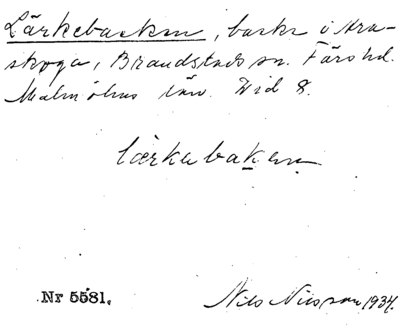 Lärkebacken, backe i Kra-
skoga, Brandstads sn. Färs hd.
Malmöhus län. Bid 8.
lærkebakan
Nr 5581.
Nils Nilsson 1934.